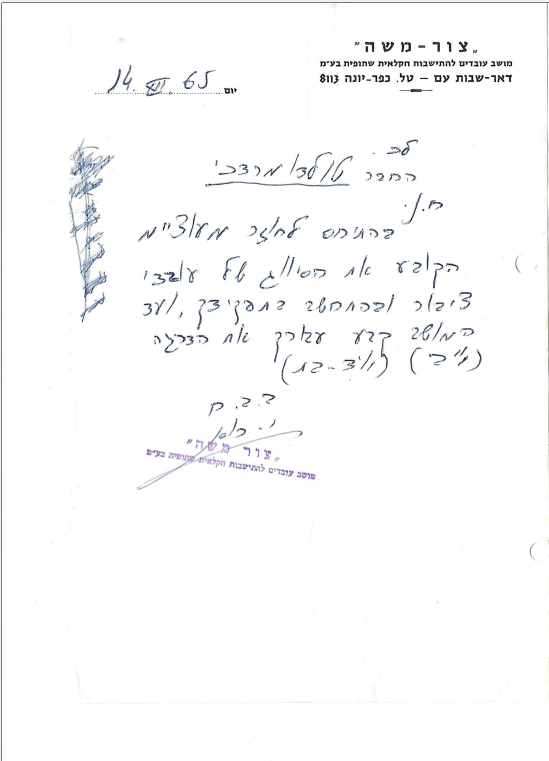 „צור-משה"
מושב עובדים להתישבות חקלאית שתופית בע״מ
דאר-שבות עם — טל. כפר-יונה 8113
יום 14. XII. 65
לכ.
החבר טולדו מרדכי
ח.נ.
בהתיחס לחוזר
הקובע את הסיווג של עובדי
ציבור ובהתחשב בתפקידך, ועד
המושב קבע עבורך את הדרגה
(י״ב) (יוד-בת)
ב.ב.ח
„צור משה"
מושב עובדים להתישבות חקלאית שתופית בע״מ